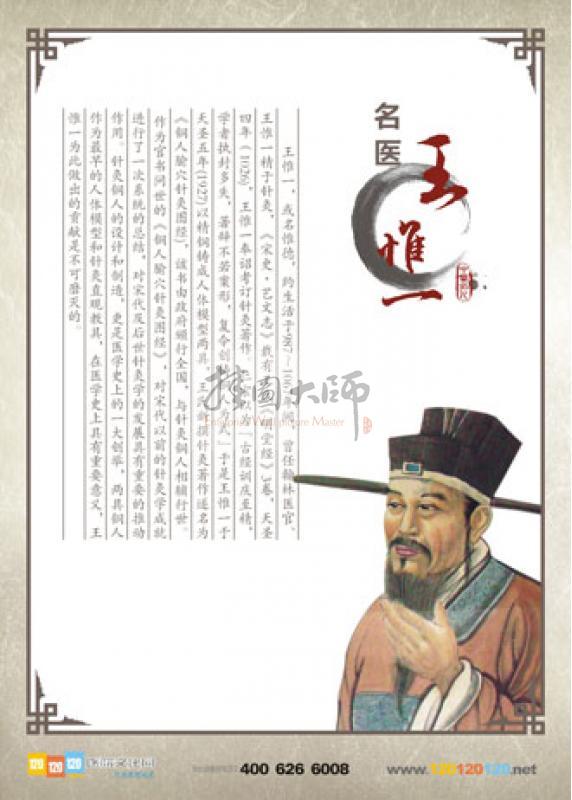 名医
王惟一
王惟一，或名惟德，约生活于987~1067年间，曾任翰林医官、
王惟一精于针灸，《宋史·艺文志》载有《明堂经》3卷，天圣
四年（1026），王惟一奉诏考订针灸著作。以为“古经训诂至精，
学者执封多失，著辞不若案形，复令创铸为式」于是王惟一于
天圣五年(1927)以精铜铸成人体模型两具。王氏新撰针灸著作遂名为
《铜人腧穴针灸图经》，该书由政府颁行全国，与针灸铜人相辅行世。
作为官书问世的《铜人腧穴针灸图经》，对宋代以前的针灸学成就
进行了一次系统的总结，对宋代及后世针灸学的发展具有重要的推动
作用。针灸铜人的设计和制造，更是医学史上的一大创举，两具铜人
作为最早的人体模型和针灸直观教具，在医学史上具有重要意义，王
惟一为此做出的贡献是不可磨灭的。
挂图大师
Master
120 120 120
400 626 6008
www.120120120.net